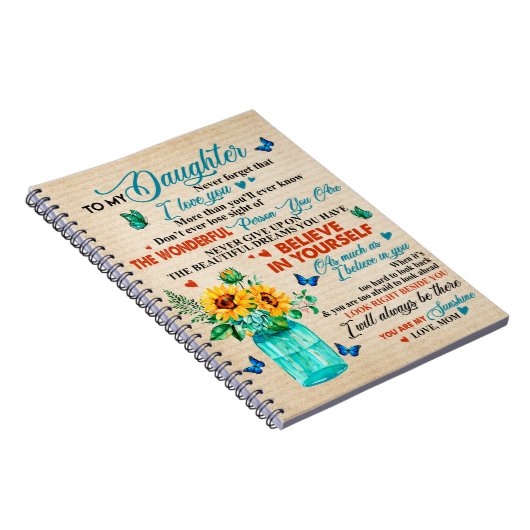 TO MY Daughter
Never forget that
I love you
More than you'll ever know
Don't ever lose sight of
THE WONDERFUL Person You Are
NEVER GIVE UP ON
THE BEAUTIFUL DREAMS YOU HAVE
BELIEVE
IN YOURSELF
As much as
I believe in you
When it's
too hard to look back
& you are too afraid to look ahead
LOOK RIGHT BESIDE YOU
I will always be there
YOU ARE MY Sunshine
LOVE, MOM